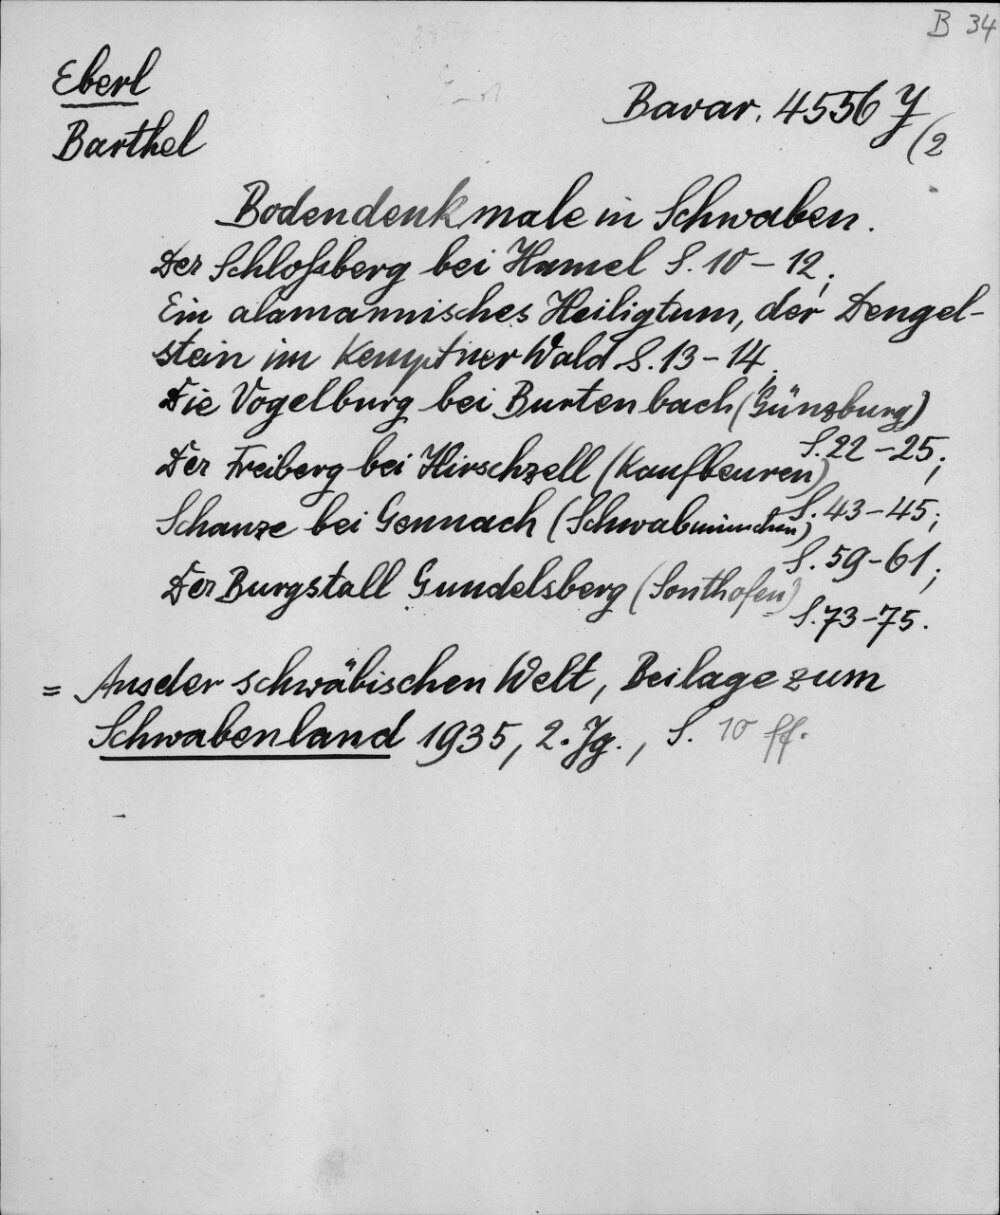 B 34
Eberl
Barthel
Bavar. 4556 y
(2
Bodendenkmale in Schwaben.
Der Schloßberg bei Hamel S. 10-12;
Ein alamannisches Heiligtum, der Dengel-
stein im Kemptner Wald S. 13-14;
Die Vogelburg bei Burtenbach (Günzburg)
S. 22-25;
Der Freiberg bei Hirschzell (Kaufbeuren)
S. 43-45;
Schanze bei Gennach (Schwabmünchen)
S. 59-61;
Der Burgstall Gundelsberg (Sonthofen)
S. 73-75.
= Aus der schwäbischen Welt, Beilage zum
Schwabenland 1935, 2. Jg., S. 10 ff.